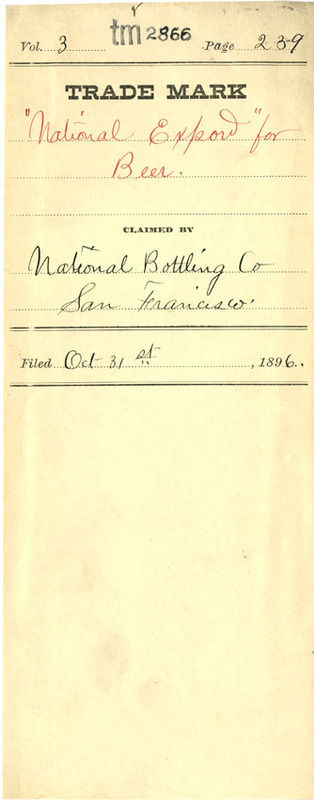 Vol. 3 tm 2866 Page 239
TRADE MARK
"National Export" for
Beer.
CLAIMED BY
National Bottling Co
San Francisco.
Filed Oct 31st, 1896.